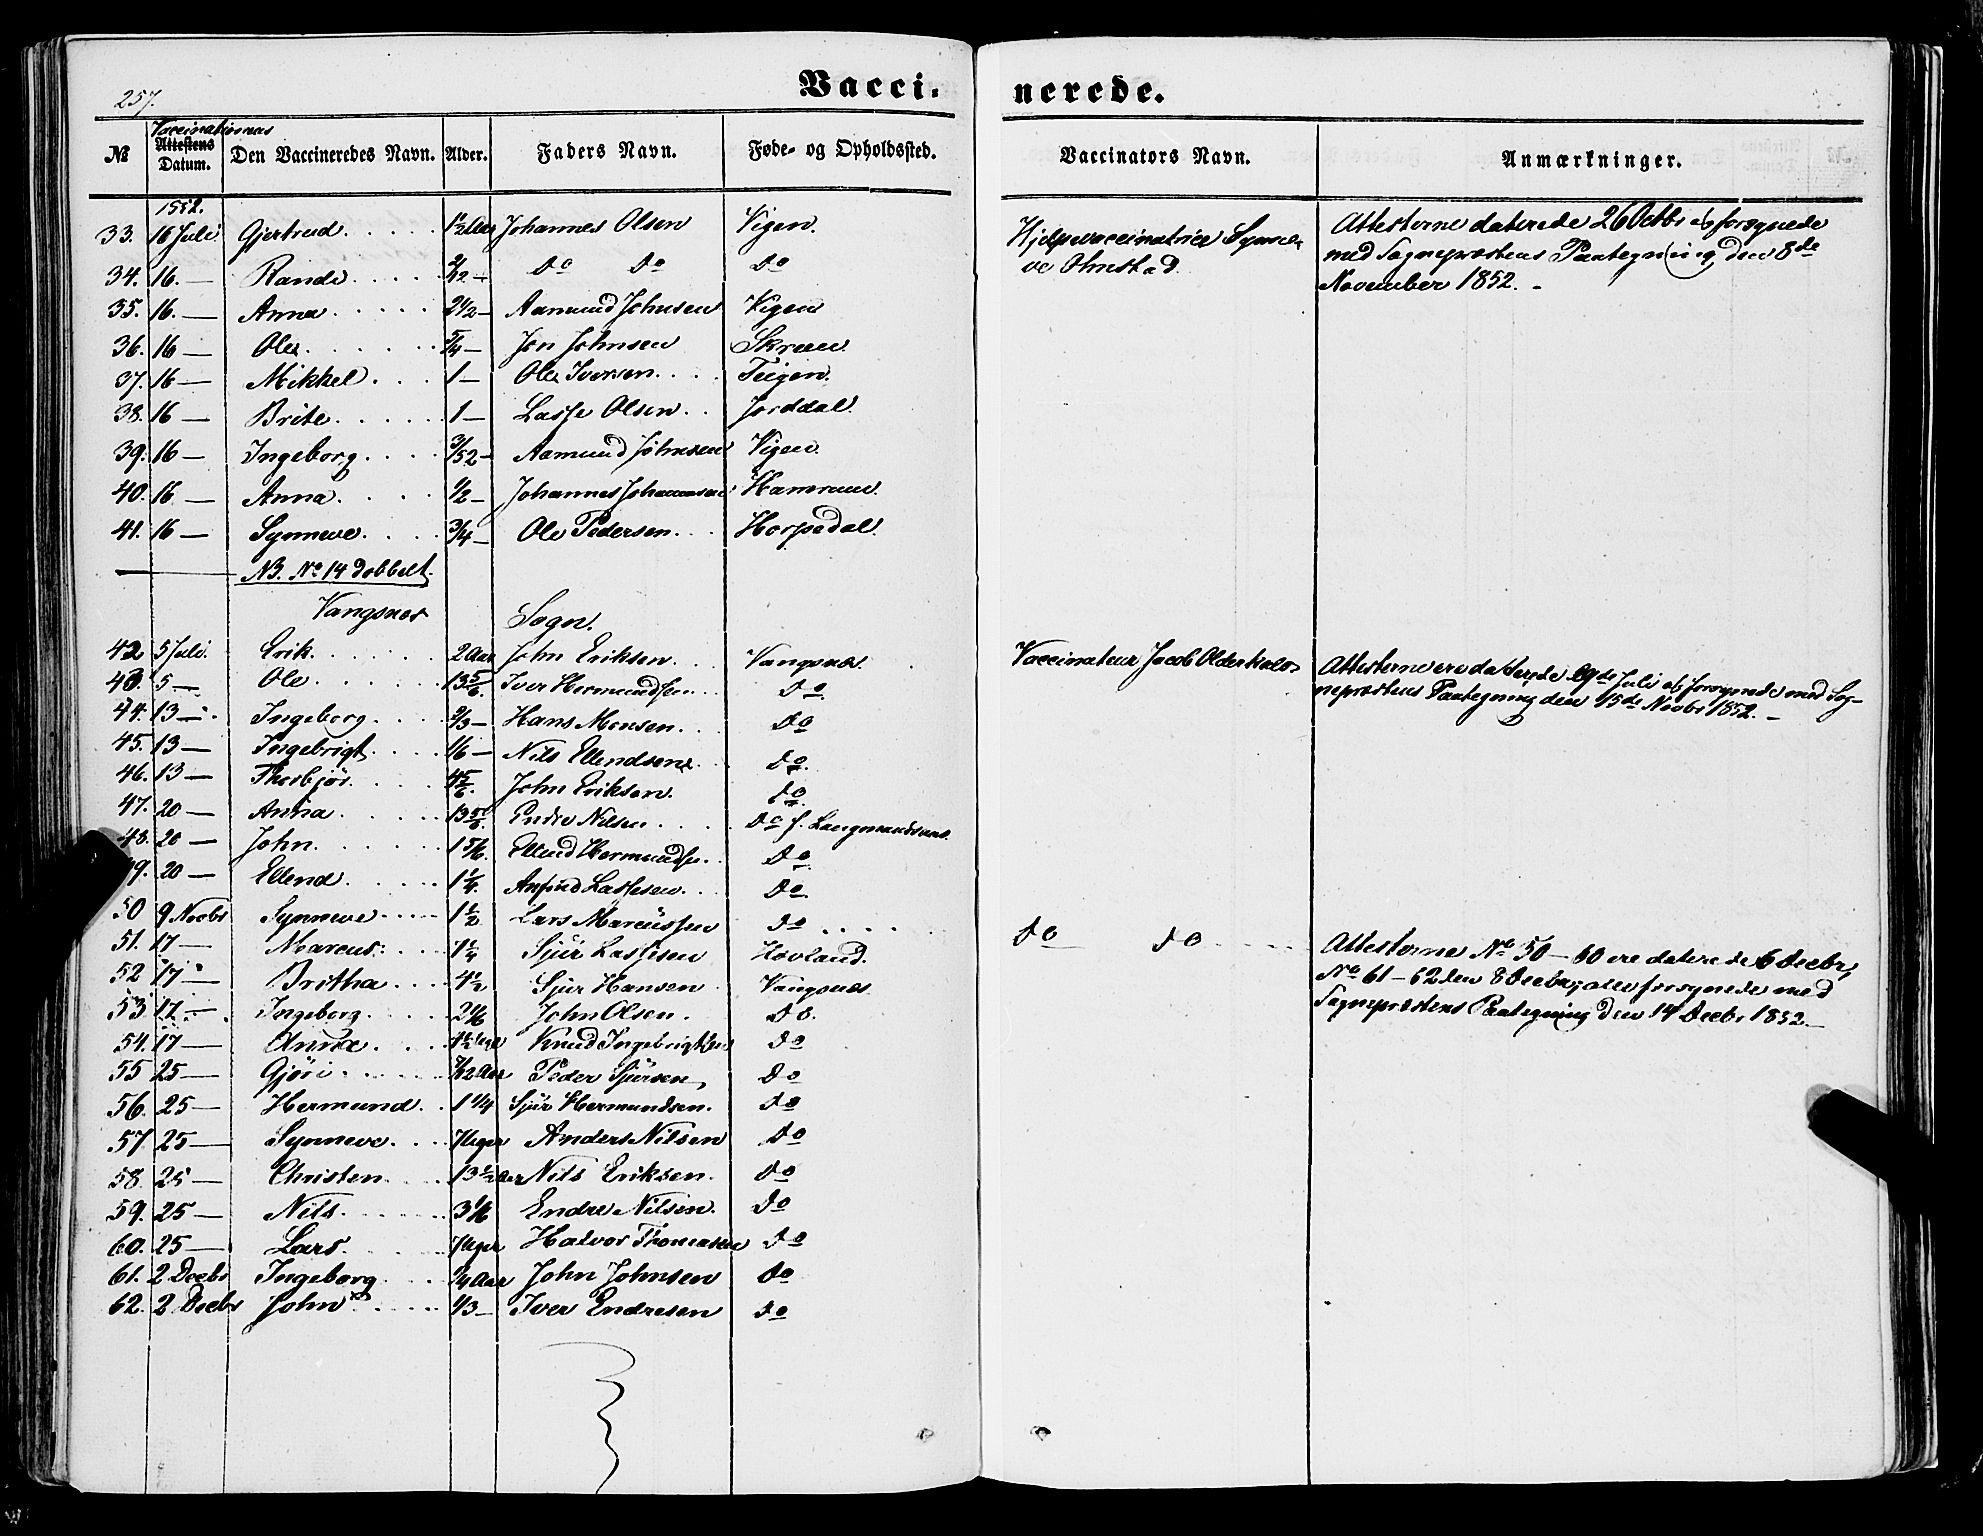 257.
Vacci-
nerede.
Vaccinationens
№ Attestens Datum. Den Vaccineredes Navn. Alder. Faders Navn. Føde- og Opholdssted. Vaccinators Navn. Anmærkninger.
1852.
33. 16 Juli Gjertrud 1½ Aar Johannes Olsen Vigen.
34. 16. — Randi Do Do Do
35. 16. — Anna 2½ — Aamund Johnsen Vigen
36. 16 — Ole 5/4 — Jon Johnsen Skruen.
37. 16 — Mikkel 1 — Ole Iversen Teigen.
38. 16 — Brite 1 — Lasse Olsen Jorddal.
39. 16 — Ingeborg 3/52 — Aamund Johnsen Vigen.
40. 16 — Anna ½ — Johannes Johannesen Hamrum.
41. 16 — Synneve ¾ — Ole Pedersen Horpedal.
NB. No 14 dobbelt.
Vangsnæs Sogn.
42 5 Juli. Erik. 2 Aar John Eriksen Vangsnæs.
43. 5 — Ole 13 5/6. Iver Hermundsen Do
44. 13 — Ingeborg 2/3 — Hans Monsen Do
45. 13 — Ingebrigt 1/6 — Nils Ellendsen Do
46. 13 — Thorbjør. 4 5/6. John Eriksen. Do
47. 20 — Anna 13 5/6. Endre Nilsen Do
48. 20 — John. 1 5/6. Ellend Hermundsen Do
49. 20 — Ellend 1 ¼. Anfind Lassesen Do
50 9 Novbr Synneve 1 ½ Lars Marcussen Do
51. 17 — Marcus 1 ¼ Sjür Lassesen Hovland.
52 17 Britha 4 ½ Sjur Hansen Vangsnæs
53 17 — Ingeborg 2 1/6 John Olsen. Do.
54. 17 — Anna Knud Ingebrigtsen Do
55 25 — Gjøri 7/12 Aar Peder Sjursen, Do
56. 25 — Hermund 1 ¼ Sjür Hermundsen. Do
57. 25 — Synneve 7 Uger Anders Nilsen Do
58. 25 — Christen 13 ½ Aar Nils Eriksen. Do
59. 25 — Nils 3 1/6 Endre Nilsen. Do
60. 25 — Lars. 7 Uger Halvor Thomasen Do
61. 2 Decbr Ingeborg ¼ Aar John Johnsen Do
62. 2. Decbr John 1/3 — Iver Endresen Do
Hjelpevaccinatrice Synne-
ve Olmstad.
Attesterne daterede 26 Octbr og forsynede
med Sogneprestens Paategning den 8de
November 1852. —
Vaccinateur Jacob
Attesterne ere daterede 19de Juli og forsynede med Sog-
neprestens Paategning den 15de Novbr 1852. —
Do Do
Attesterne No 50 — 60 ere daterede 6 Decbr,
No 61 — 62 den 8 Decbr, alle forsynede med
Sogneprestens Paategning den 14 Decbr 1852. —